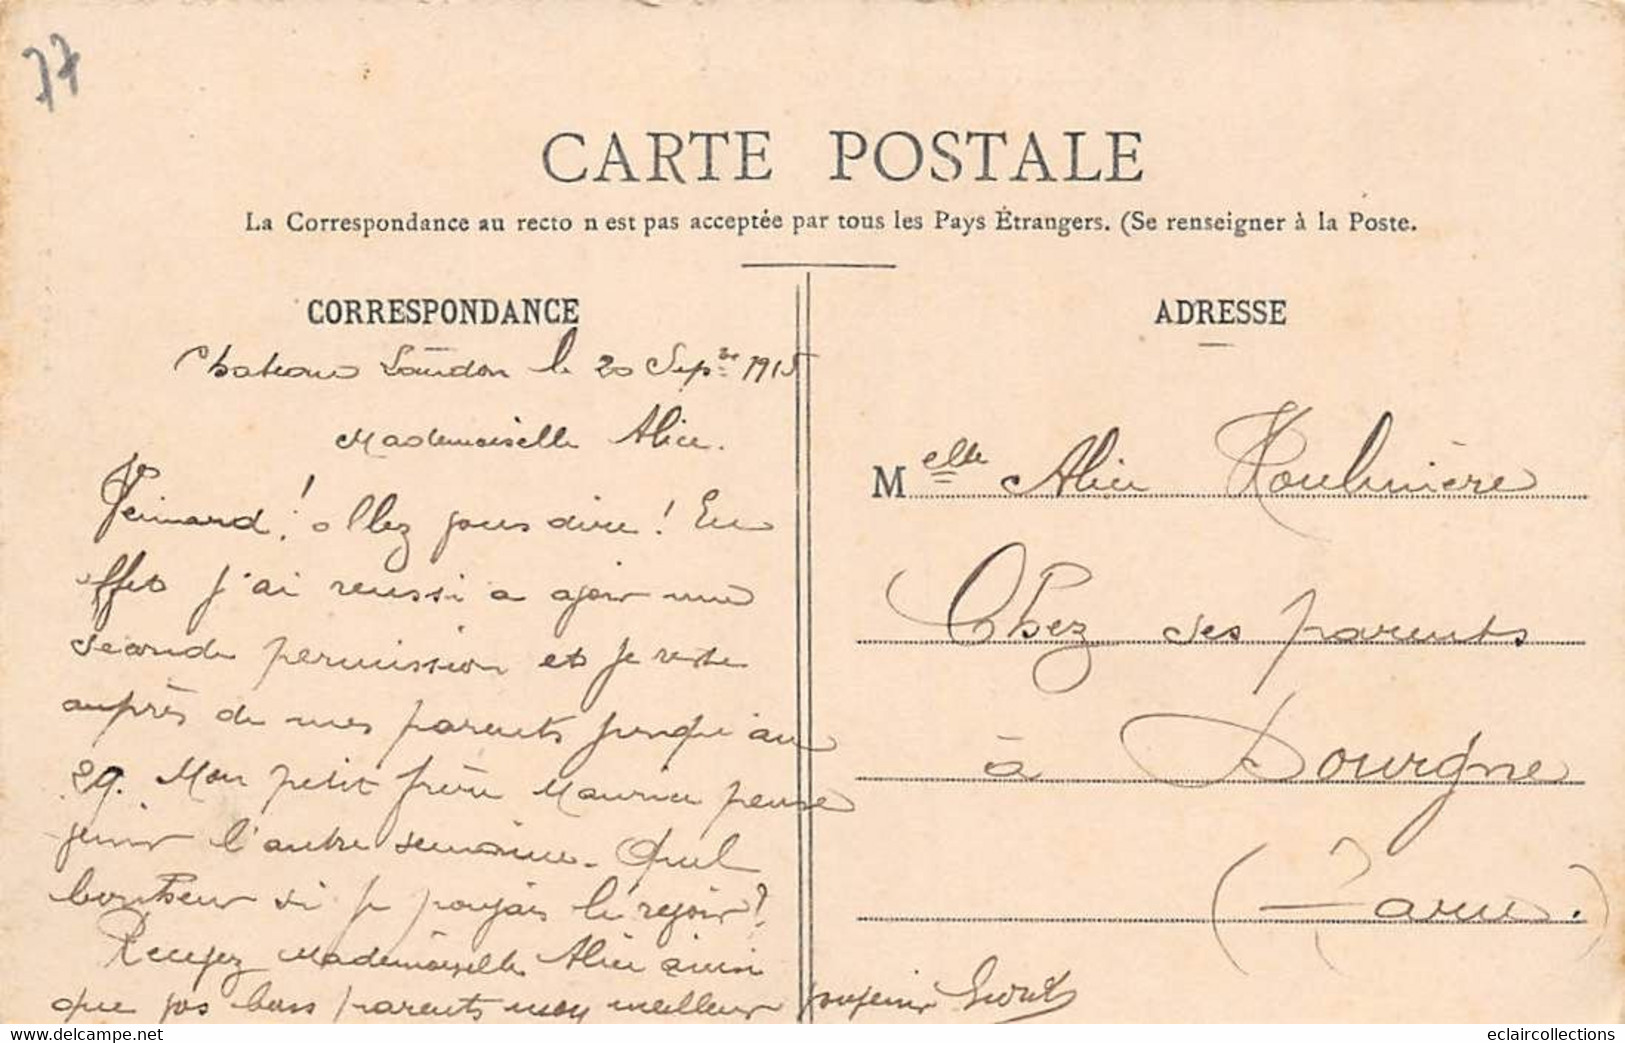 77
CARTE POSTALE
La Correspondance au recto n est pas acceptée par tous les Pays Étrangers. (Se renseigner à la Poste.
CORRESPONDANCE
ADRESSE
Chateau Landon le 20 Sepbre 1915
Mademoiselle Alice.
Veinard! allez vous dire! En
effet j'ai reussi a avoir une
seconde permission et je reste
auprès de mes parents jusqu'au
29. Mon petit frère Maurice pense
venir l'autre semaine. Quel
bonheur si je pouvais le revoir!
Recevez Mademoiselle Alice ainsi
que vos bons parents mon meilleur souvenir
Melle Alice Houlmière
Chez ses parents
à Dourgne
(Tarn.)
eclaircollections